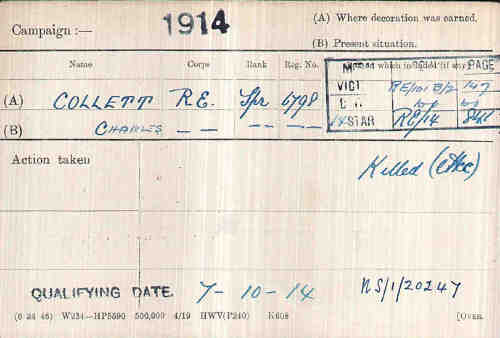 Campaign :— 1914 (A) Where decoration was earned.
(B) Present situation.
Name Corps Rank Reg. No. which is PAGE
(A) COLLETT R.E. Spr 6798 VICT RE/101 B/2 147
(B) CHARLES — — — — — — do do
14 STAR RE/14
Action taken
Killed
QUALIFYING DATE. 7-10-14 NS/1/20247
(6 24 46) W234—HP5590 500,000 4/19 HWV(P240) K608 [OVER.